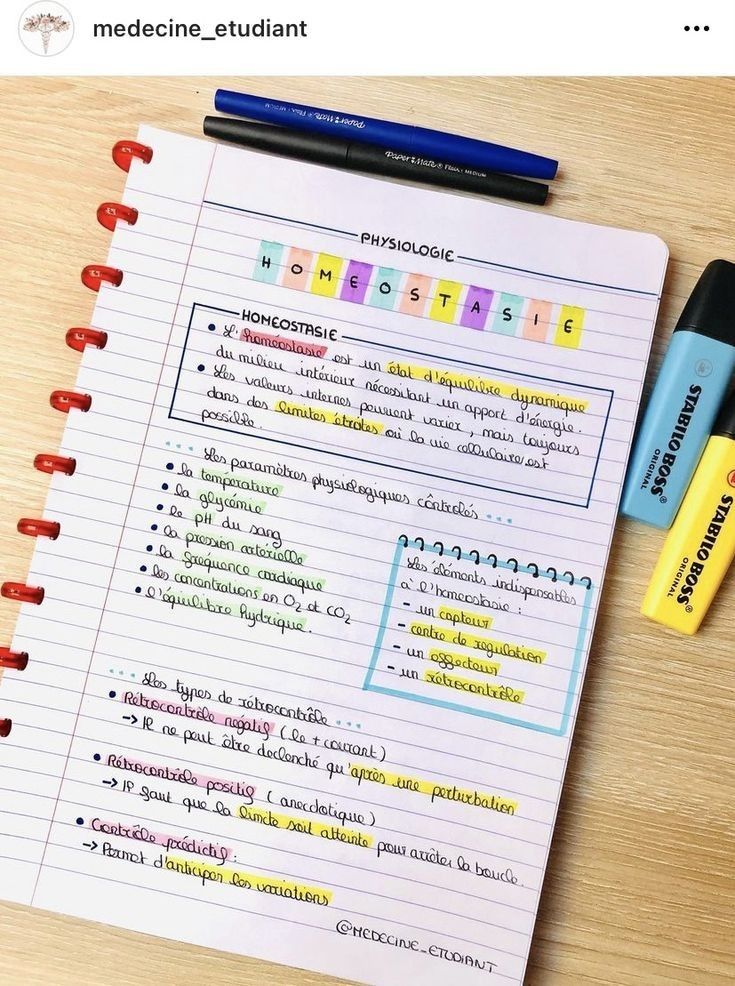 medecine_etudiant
Paper:Mate® Flair. MEDIUM
Paper:Mate® Flair. MEDIUM
PHYSIOLOGIE
HOMEOSTASIE
HOMÉOSTASIE
• L'homéostasie est un état d'équilibre dynamique
du milieu intérieur nécessitant un apport d'énergie.
• Les valeurs internes peuvent varier, mais toujours
dans des limites étroites où la vie cellulaire est
possible.
... Les paramètres physiologiques contrôlés ...
• la température
• la glycémie
• le pH du sang
• la pression artérielle
• la fréquence cardiaque
• les concentrations en O2 et CO2
• l'équilibre hydrique.
Les éléments indispensables
à l'homeostasie :
- un capteur
- centre de regulation
- un effecteur
- un rétrocontrôle
... Les types de rétrocontrôle ...
• Rétrocontrôle négatif (le + courant)
-> Il ne peut être declenché qu'après une perturbation
• Rétrocontrôle positif (anecdotique)
-> Il faut que la limite soit atteinte pour arrêter la boucle.
• Contrôle prédictif :
-> Permet d'anticiper les variations
@MEDECINE_ETUDIANT
STABILO BOSS
ORIGINAL
STABILO BOSS
ORIGINAL